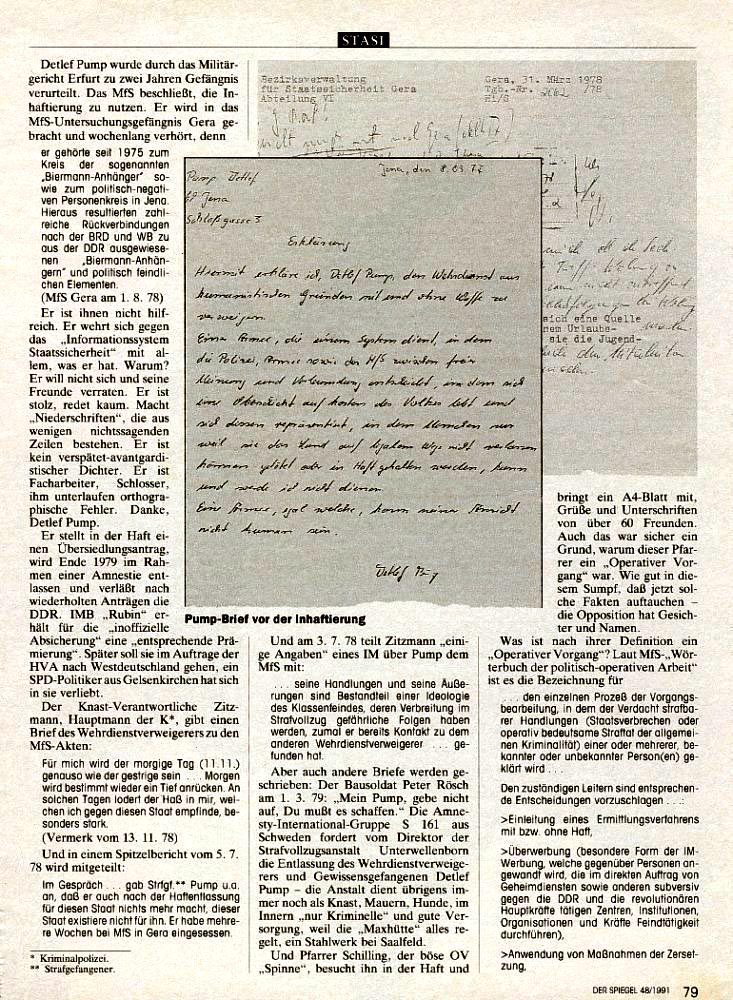 STASI
Detlef Pump wurde durch das Militär-
gericht Erfurt zu zwei Jahren Gefängnis
verurteilt. Das MfS beschließt, die In-
haftierung zu nutzen. Er wird in das
MfS-Untersuchungsgefängnis Gera ge-
bracht und wochenlang verhört, denn
er gehörte seit 1975 zum
Kreis der sogenannten
„Biermann-Anhänger“ so-
wie zum politisch-negati-
ven Personenkreis in Jena.
Hieraus resultierten zahl-
reiche Rückverbindungen
nach der BRD und WB zu
aus der DDR ausgewiese-
nen „Biermann-Anhän-
gern“ und politisch feindli-
chen Elementen.
(MfS Gera am 1. 8. 78)
Er ist ihnen nicht hilf-
reich. Er wehrt sich gegen
das „Informationssystem
Staatssicherheit“ mit al-
lem, was er hat. Warum?
Er will nicht sich und seine
Freunde verraten. Er ist
stolz, redet kaum. Macht
„Niederschriften“, die aus
wenigen nichtssagenden
Zeilen bestehen. Er ist
kein verspätet-avantgardi-
stischer Dichter. Er ist
Facharbeiter, Schlosser,
ihm unterlaufen orthogra-
phische Fehler. Danke,
Detlef Pump.
Er stellt in der Haft ei-
nen Übersiedlungsantrag,
wird Ende 1979 im Rah-
men einer Amnestie ent-
lassen und verläßt nach
wiederholten Anträgen die
DDR. IMB „Rubin“ er-
hält für die „inoffizielle
Absicherung“ eine „entsprechende Prä-
mierung“. Später soll sie im Auftrage der
HVA nach Westdeutschland gehen, ein
SPD-Politiker aus Gelsenkirchen hat sich
in sie verliebt.
Der Knast-Verantwortliche Zitz-
mann, Hauptmann der K*, gibt einen
Brief des Wehrdienstverweigerers zu den
MfS-Akten:
Für mich wird der morgige Tag (11.11.)
genauso wie der gestrige sein . . . Morgen
wird bestimmt wieder ein Tief anrücken. An
solchen Tagen lodert der Haß in mir, wel-
chen ich gegen diesen Staat empfinde, be-
sonders stark.
(Vermerk vom 13. 11. 78)
Und in einem Spitzelbericht vom 5. 7.
78 wird mitgeteilt:
Im Gespräch . . . gab Strfgt.** Pump u.a.
an, daß er auch nach der Haftentlassung
für diesen Staat nichts mehr macht, dieser
Staat existiere nicht für ihn. Er habe mehre-
re Wochen bei MfS in Gera eingesessen.
* Kriminalpolizei.
** Strafgefangener.
Bezirksverwaltung
für Staatssicherheit Gera
Abteilung VI
Gera, 31. März 1978
Tgb.-Nr. 2062 /78
Hi/S
sich eine Quelle
nem Urlaube-
sie die Jugend-
Pump Detlef
69 Jena
Schloßgasse 3
Jena, den 8.03.77
Erklärung
Hiermit erkläre ich, Detlef Pump, den Wehrdienst aus
humanistischen Gründen mit und ohne Waffe zu
verweigern.
Eine Armee, die einem System dient, in dem
die Polizei, Armee sowie der MfS zwischen freier
Meinung und Verleumdung entscheidet, in dem sich
eine Oberschicht auf kosten des Volkes lebt und
sich dessen repräsentiert, in dem Menschen nur
weil sie das Land auf legalem Wege nicht verlassen
können getötet oder in Haft gehalten werden, kann
und werde ich nicht dienen.
Eine Armee, egal welche, kann meiner Ansicht
nicht human sein.
Detlef Pump
Pump-Brief vor der Inhaftierung
Und am 3. 7. 78 teilt Zitzmann „eini-
ge Angaben“ eines IM über Pump dem
MfS mit:
. . . seine Handlungen und seine Äuße-
rungen sind Bestandteil einer Ideologie
des Klassenfeindes, deren Verbreitung im
Strafvollzug gefährliche Folgen haben
werden, zumal er bereits Kontakt zu dem
anderen Wehrdienstverweigerer . . . ge-
funden hat.
Aber auch andere Briefe werden ge-
schrieben: Der Bausoldat Peter Rösch
am 1. 3. 79: „Mein Pump, gebe nicht
auf, Du mußt es schaffen.“ Die Amne-
sty-International-Gruppe S 161 aus
Schweden fordert vom Direktor der
Strafvollzugsanstalt Unterwellenborn
die Entlassung des Wehrdienstverweige-
rers und Gewissensgefangenen Detlef
Pump – die Anstalt dient übrigens im-
mer noch als Knast, Mauern, Hunde, im
Innern „nur Kriminelle“ und gute Ver-
sorgung, weil die „Maxhütte“ alles re-
gelt, ein Stahlwerk bei Saalfeld.
Und Pfarrer Schilling, der böse OV
„Spinne“, besucht ihn in der Haft und
bringt ein A4-Blatt mit,
Grüße und Unterschriften
von über 60 Freunden.
Auch das war sicher ein
Grund, warum dieser Pfar-
rer ein „Operativer Vor-
gang“ war. Wie gut in die-
sem Sumpf, daß jetzt sol-
che Fakten auftauchen –
die Opposition hat Gesich-
ter und Namen.
Was ist nach ihrer Definition ein
„Operativer Vorgang“? Laut MfS-„Wör-
terbuch der politisch-operativen Arbeit“
ist es die Bezeichnung für
. . . den einzelnen Prozeß der Vorgangs-
bearbeitung, in dem der Verdacht strafba-
rer Handlungen (Staatsverbrechen oder
operativ bedeutsame Straftat der allgemei-
nen Kriminalität) einer oder mehrerer, be-
kannter oder unbekannter Person(en) ge-
klärt wird . . .
Den zuständigen Leitern sind entsprechen-
de Entscheidungen vorzuschlagen . . .:
>Einleitung eines Ermittlungsverfahrens
mit bzw. ohne Haft,
>Überwerbung (besondere Form der IM-
Werbung, welche gegenüber Personen an-
gewandt wird, die im direkten Auftrag von
Geheimdiensten sowie anderen subversiv
gegen die DDR und die revolutionären
Hauptkräfte tätigen Zentren, Institutionen,
Organisationen und Kräfte Feindtätigkeit
durchführen),
>Anwendung von Maßnahmen der Zerset-
zung,
DER SPIEGEL 48/1991 79